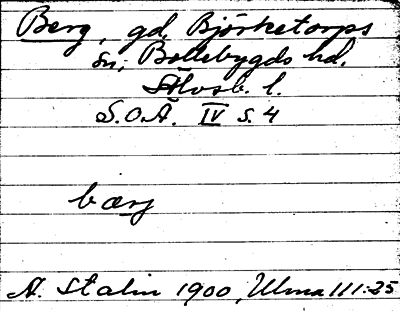 Berg, gd, Björketorps
sn, Bollebygds hd.
Älvsb. l.
S.O.Ä. IV s. 4
bærj
A. Stalin 1900, Ulma 111:35